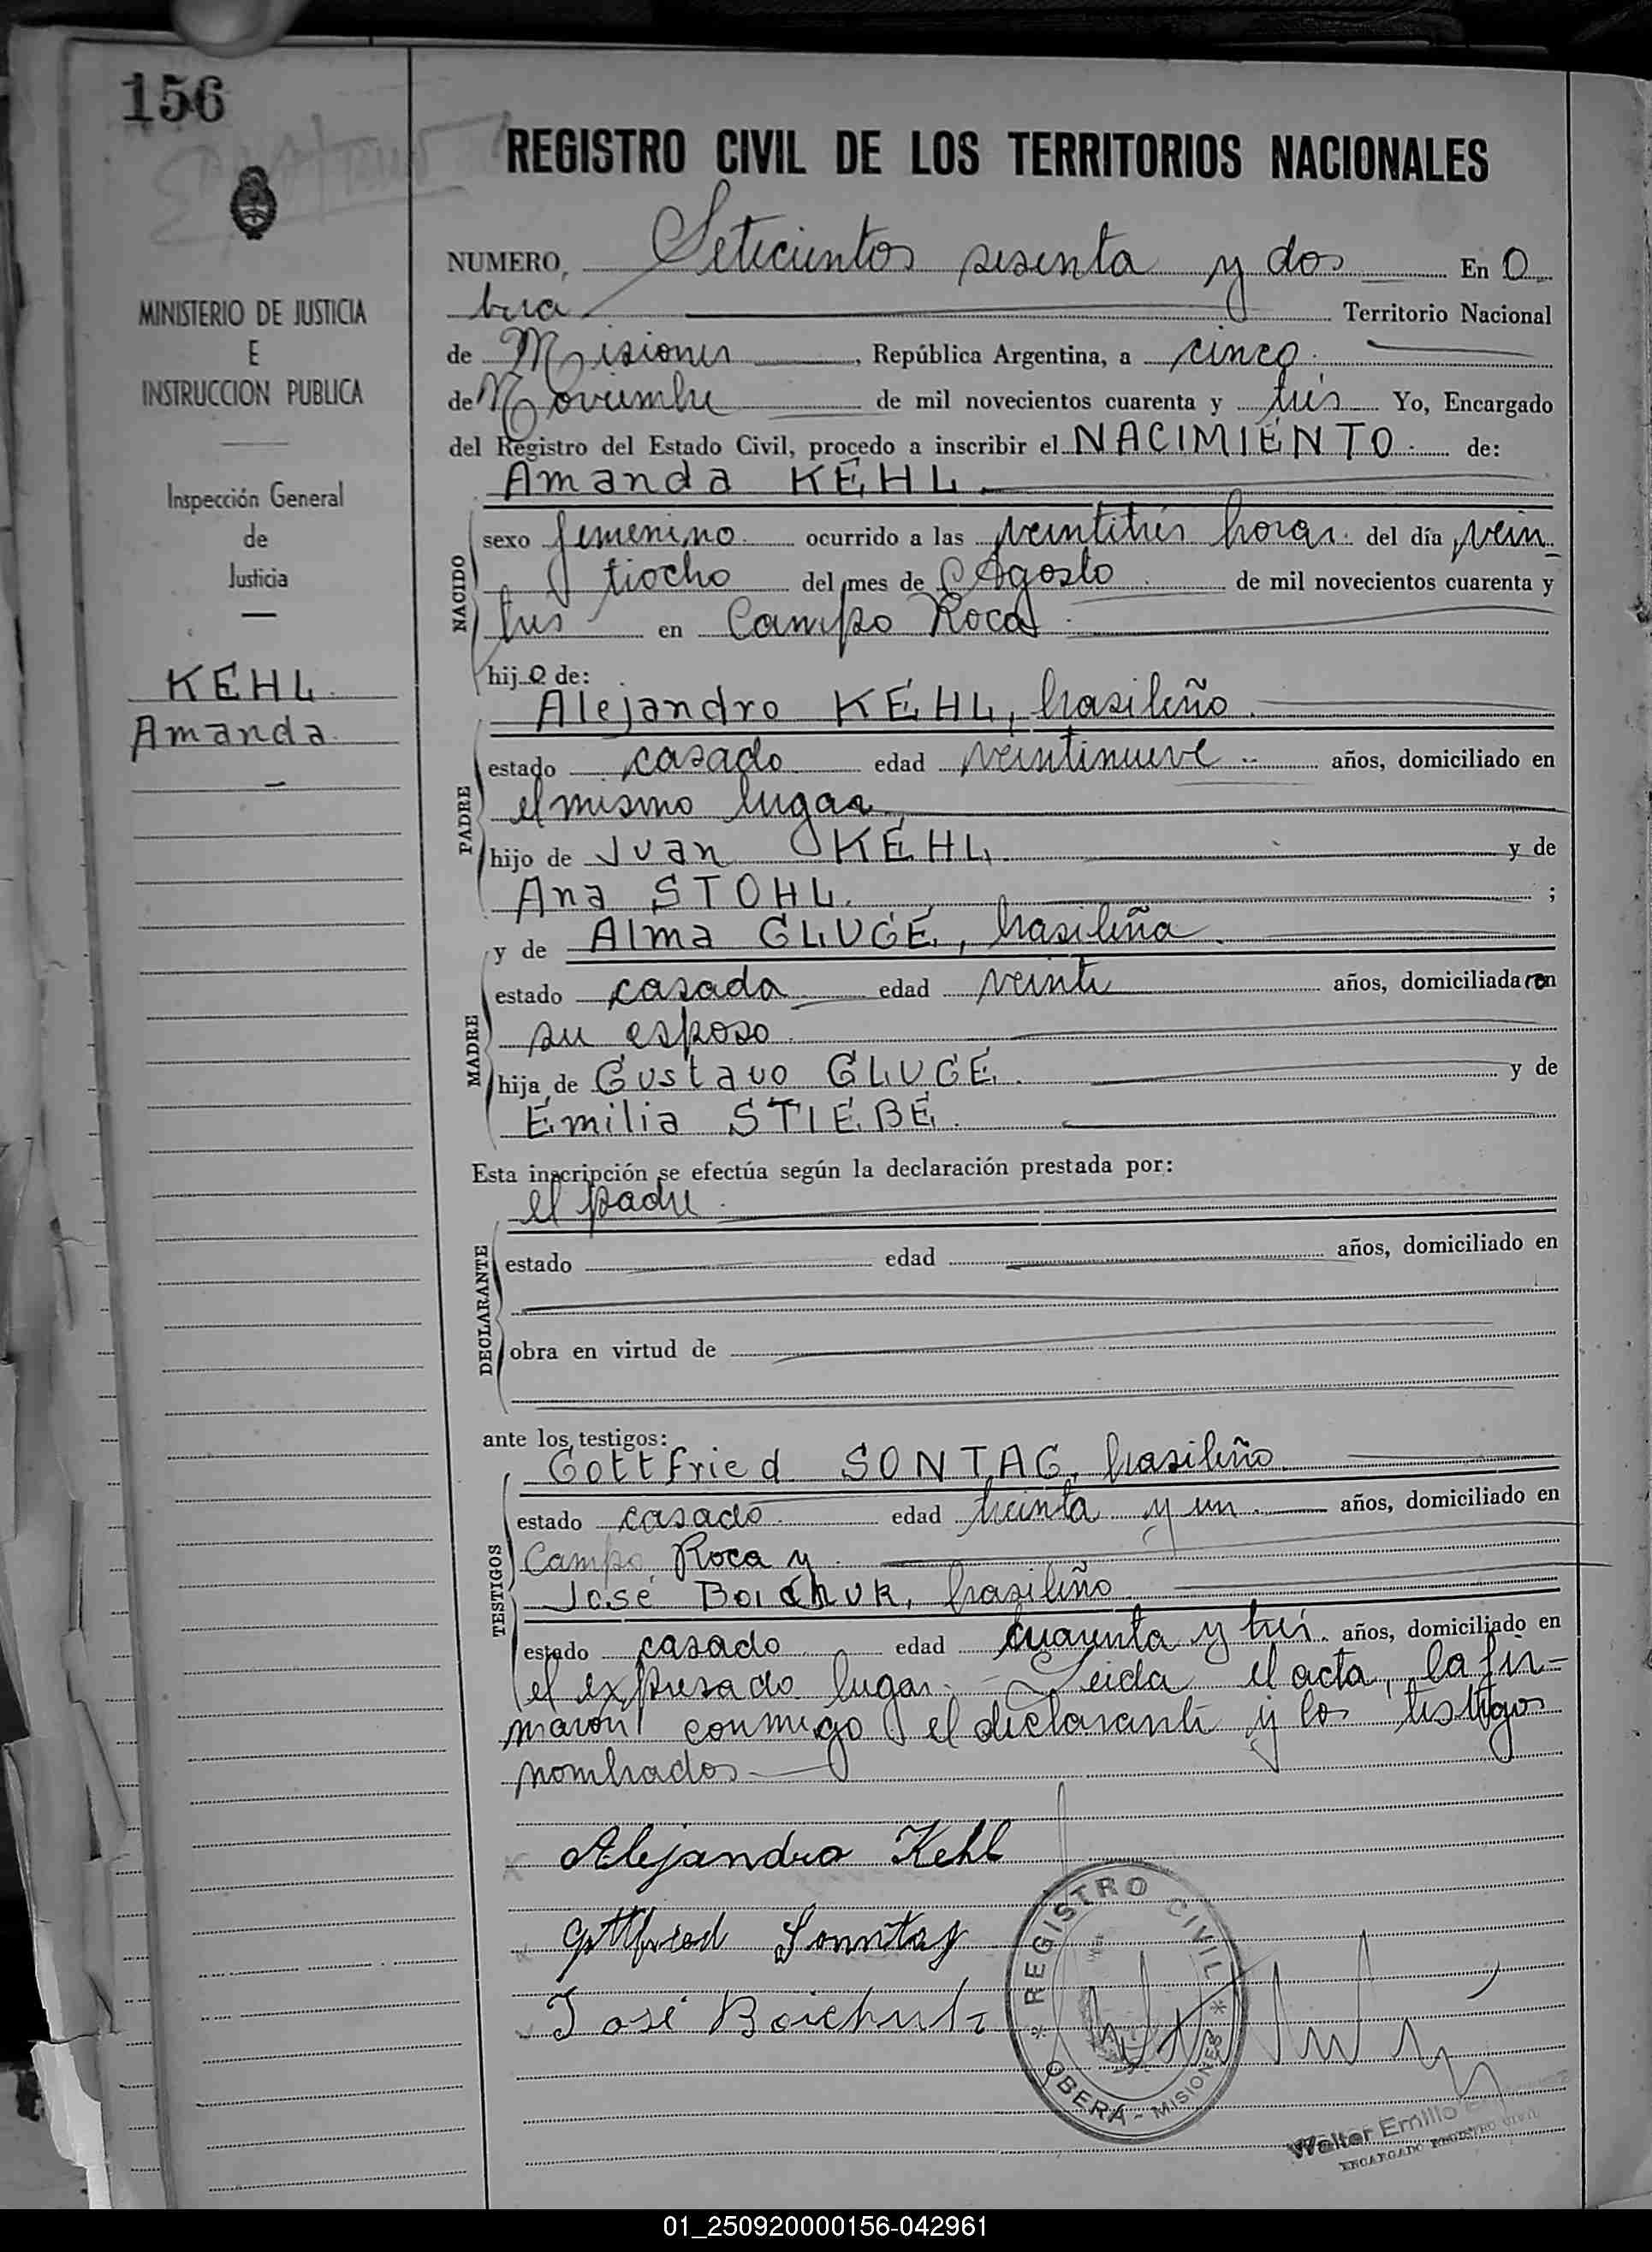 156
REGISTRO CIVIL DE LOS TERRITORIOS NACIONALES
MINISTERIO DE JUSTICIA
E
INSTRUCCION PUBLICA
Inspección General
de
Justicia
KEHL
Amanda
NUMERO, Setecientos sesenta y dos En O
berá Territorio Nacional
de Misiones, República Argentina, a cinco
de Noviembre de mil novecientos cuarenta y tres Yo, Encargado
del Registro del Estado Civil, procedo a inscribir el NACIMIENTO de:
Amanda KEHL
NACIDO
sexo femenino ocurrido a las veintitrés horas del día vein
tiocho del mes de Agosto de mil novecientos cuarenta y
tres en Campo Roca
hija de:
Alejandro KEHL, brasileño
PADRE
estado casado edad veintinueve años, domiciliado en
el mismo lugar
hijo de Juan KEHL y de
Ana STOHL ;
y de Alma GLUGE, brasileña
MADRE
estado casada edad veinte años, domiciliada con
su esposo
hija de Gustavo GLUGE y de
Emilia STIEBE
Esta inscripción se efectúa según la declaración prestada por:
el padre
DECLARANTE
estado edad años, domiciliado en
obra en virtud de
ante los testigos:
Gottfried SONTAG, brasileño
TESTIGOS
estado casado edad treinta y un años, domiciliado en
Campo Roca y
José Boichuk, brasileño
estado casado edad cuarenta y tres años, domiciliado en
el expresado lugar.- Leida el acta, la fir-
maron conmigo el declarante y los testigos
nombrados
Alejandro Kehl
Gottfried Sonntag
José Boichuk
REGISTRO CIVIL
OBERÁ - MISIONES
Walter Emilio
ENCARGADO REGISTRO CIVIL
01_250920000156-042961